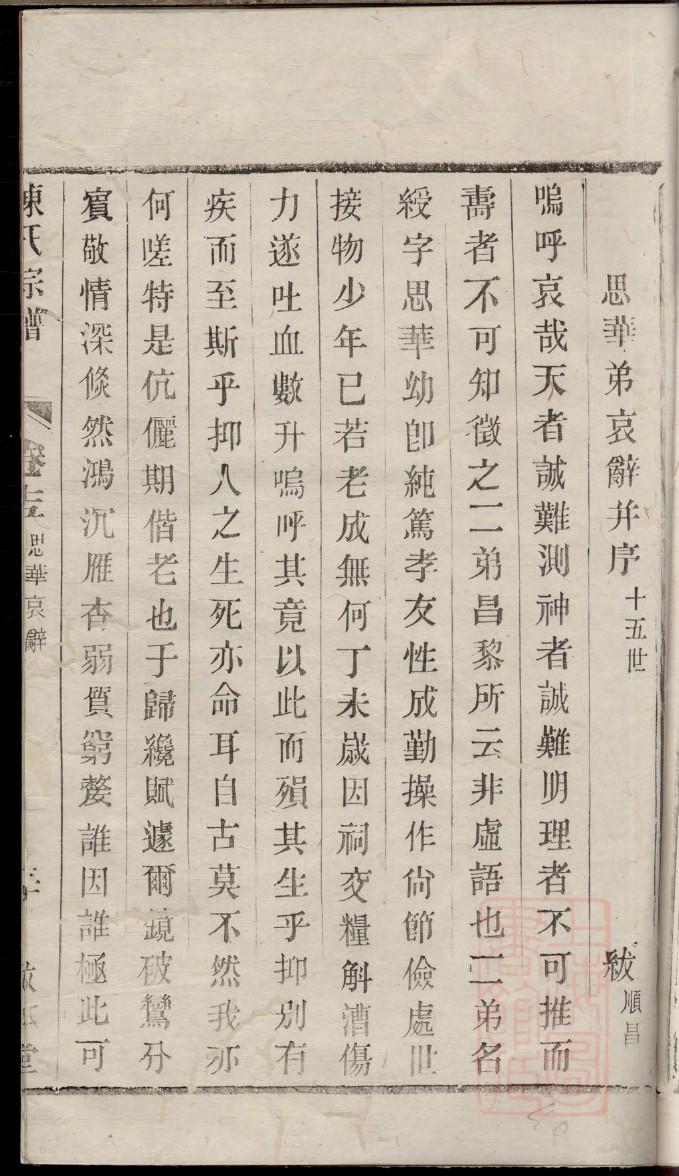 思華弟哀辭并序 十五世 紱 順昌
嗚呼哀哉天者誠難測神者誠難明理者不可推而
壽者不可知徵之二弟昌黎所云非虛語也二弟名
綬字思華幼卽純篤孝友性成勤操作尙節儉處世
接物少年已若老成無何丁未歲因祠交糧斛漕傷
力遂吐血數升嗚呼其竟以此而殞其生乎抑別有
疾而至斯乎抑人之生死亦命耳自古莫不然我亦
何嗟特是伉儷期偕老也于歸纔賦遽爾鏡破鸞分
賓敬情深倏然鴻沉雁杳弱質窮嫠誰因誰極此可
陳氏宗譜 卷 思華哀辭 堂